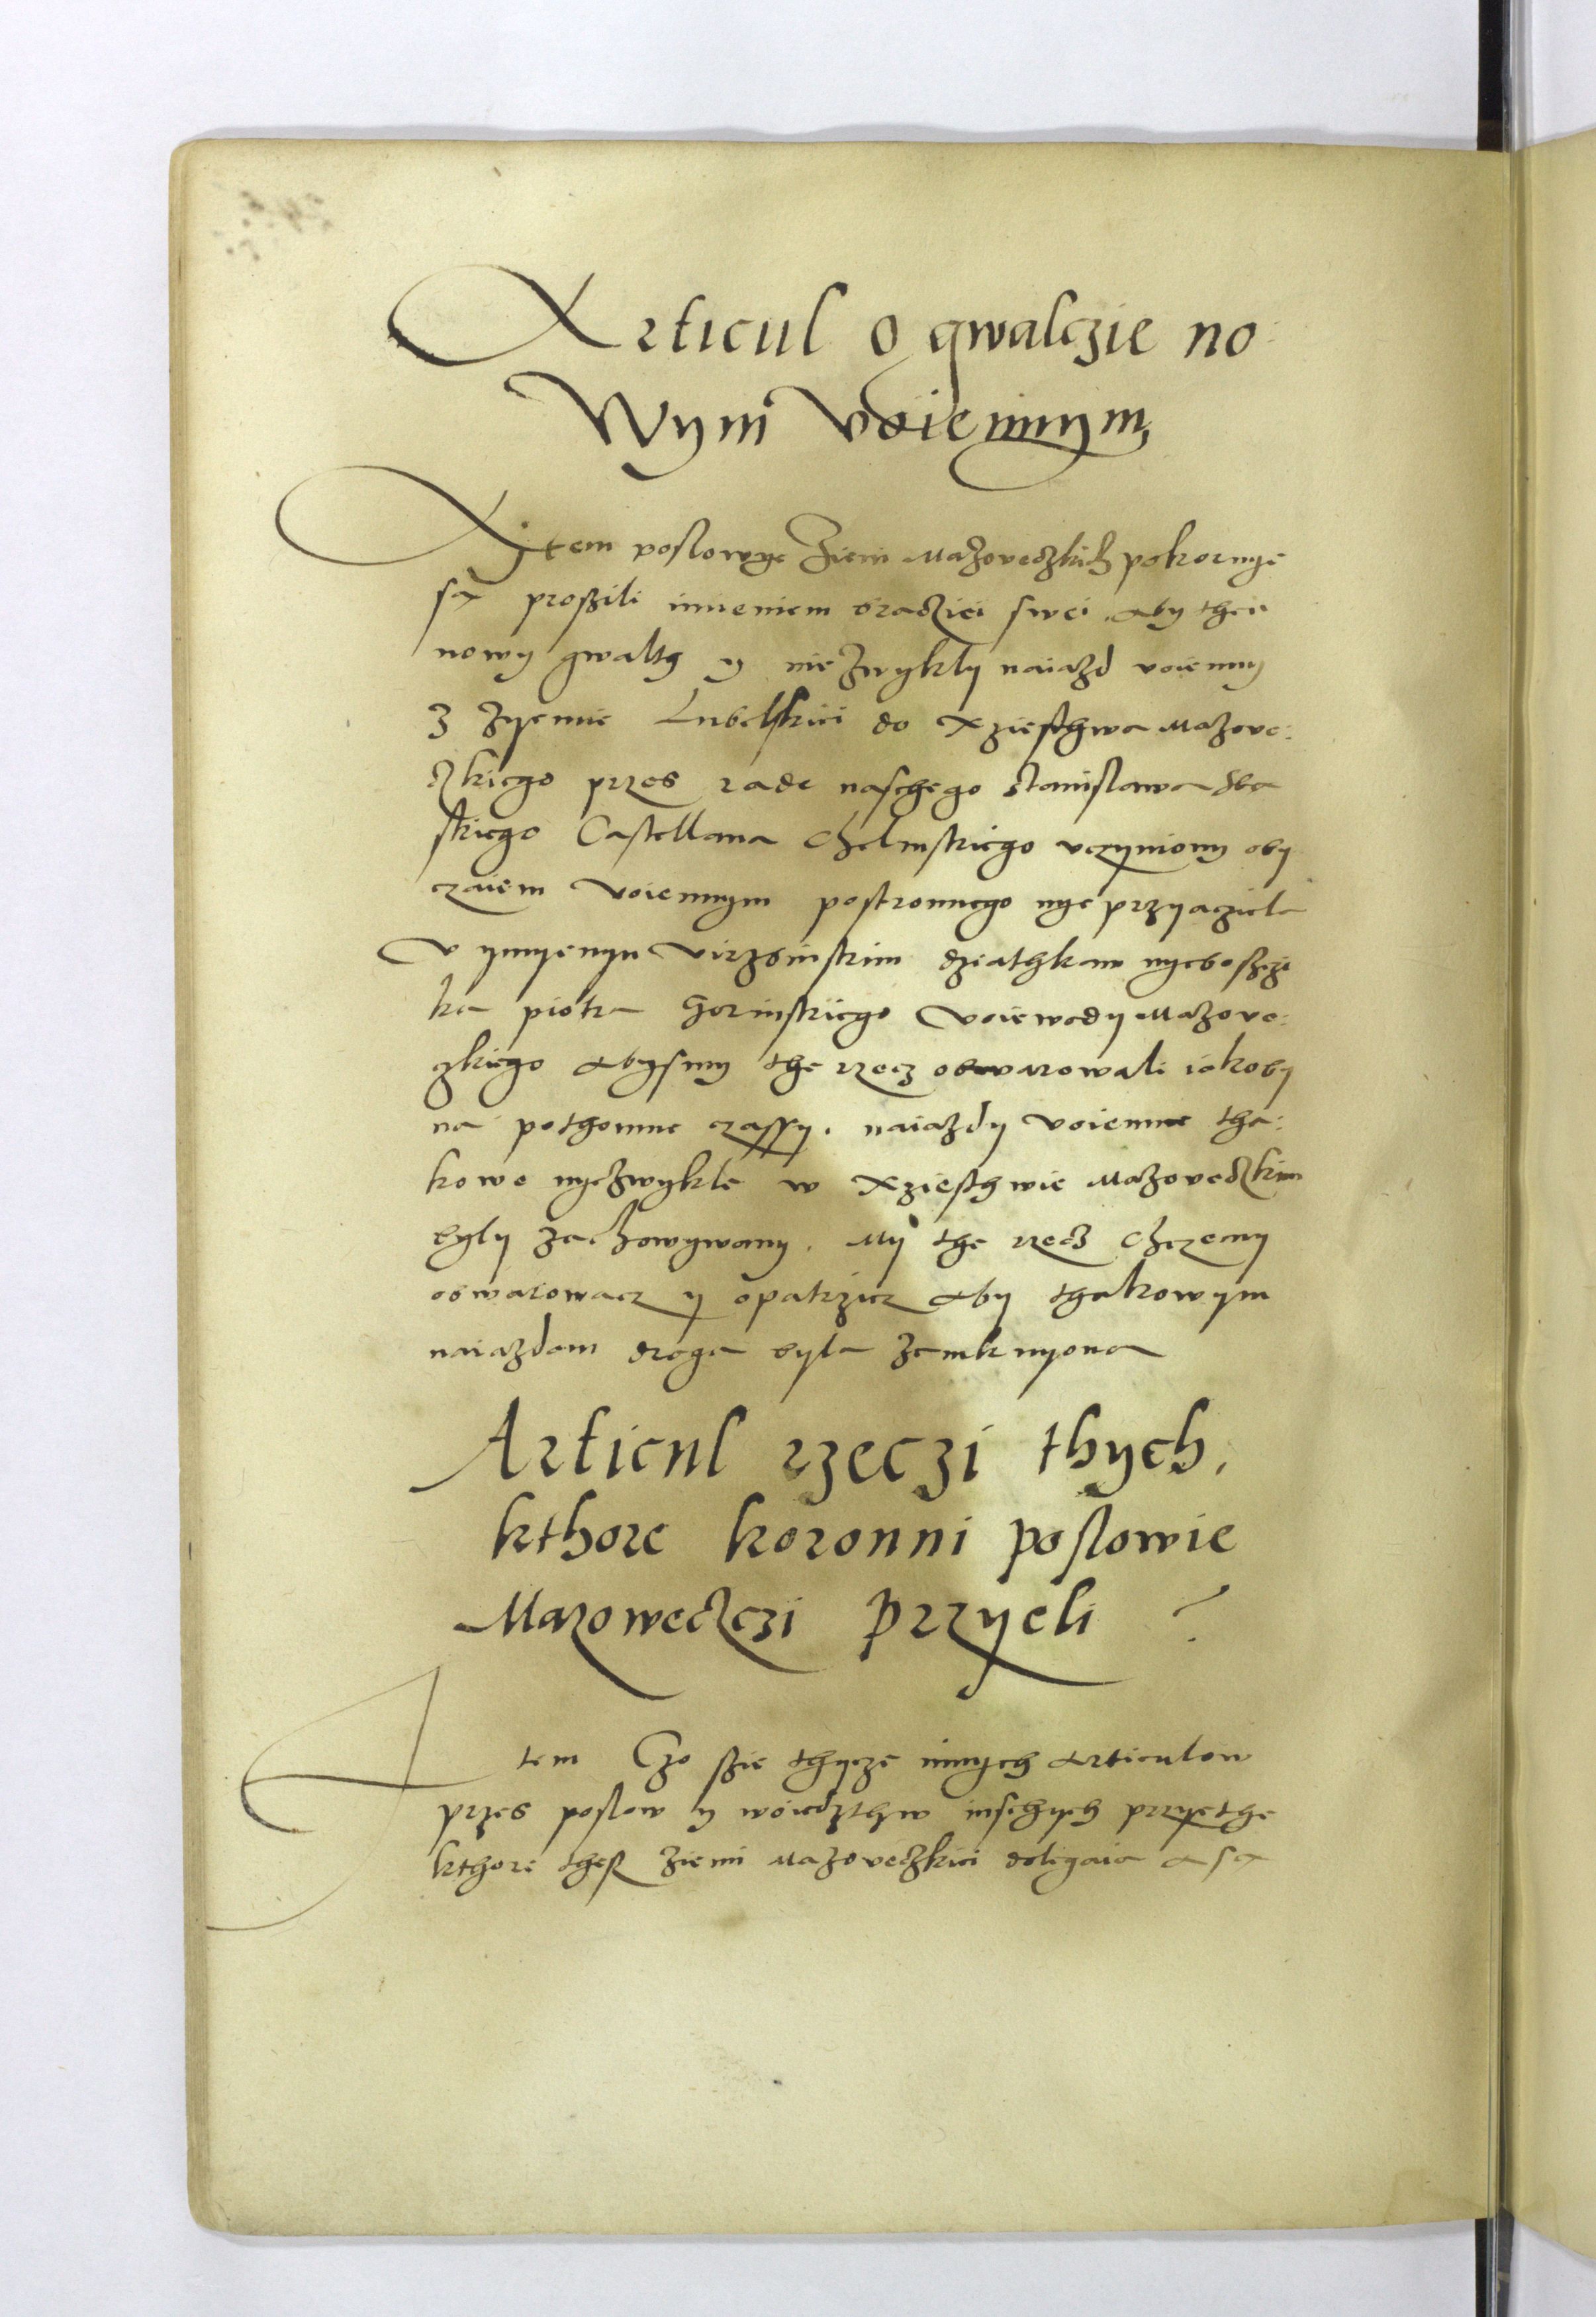 Articul o gwalczie no
wym voiennym
Item poslowye Ziem Mazoveczkich pokornye
sa proszili imieniem bracziei swei, aby then
nowy gwalth y niezwykly naiazd voienny
z zyemie Lubelskiei do Xziesthwa Mazove:
czkiego przes rade naschego Stanislawa
skiego Castellana Chelmskiego vczyniony oby
czaiem voiennym postronnego nyeprzyaczielа
v ymyenyu dziathkam nyeboszczi
ka piotra Gorinskiego Voiewody Mazove:
czkiego abysmy the rzecz obwarowali iakoby
na pothomne czassy, naiazdy voienne tha:
kowe nyezwykle w Xziesthwie Mazoveczkim
byly zachowywany. My the rzecz chczemy
obwarowacz y opatrzicz aby thakowym
naiazdom droga byla zamknyona
Articul rzeczi thych,
kthore koronni poslowie
Mazoweczczi przyeli
Item Czo szie thycze innych articulow
przes poslow y woiedzthw inschych przyethe
kthore thesz ziemi Mazoveczkiei dolegaia a sa